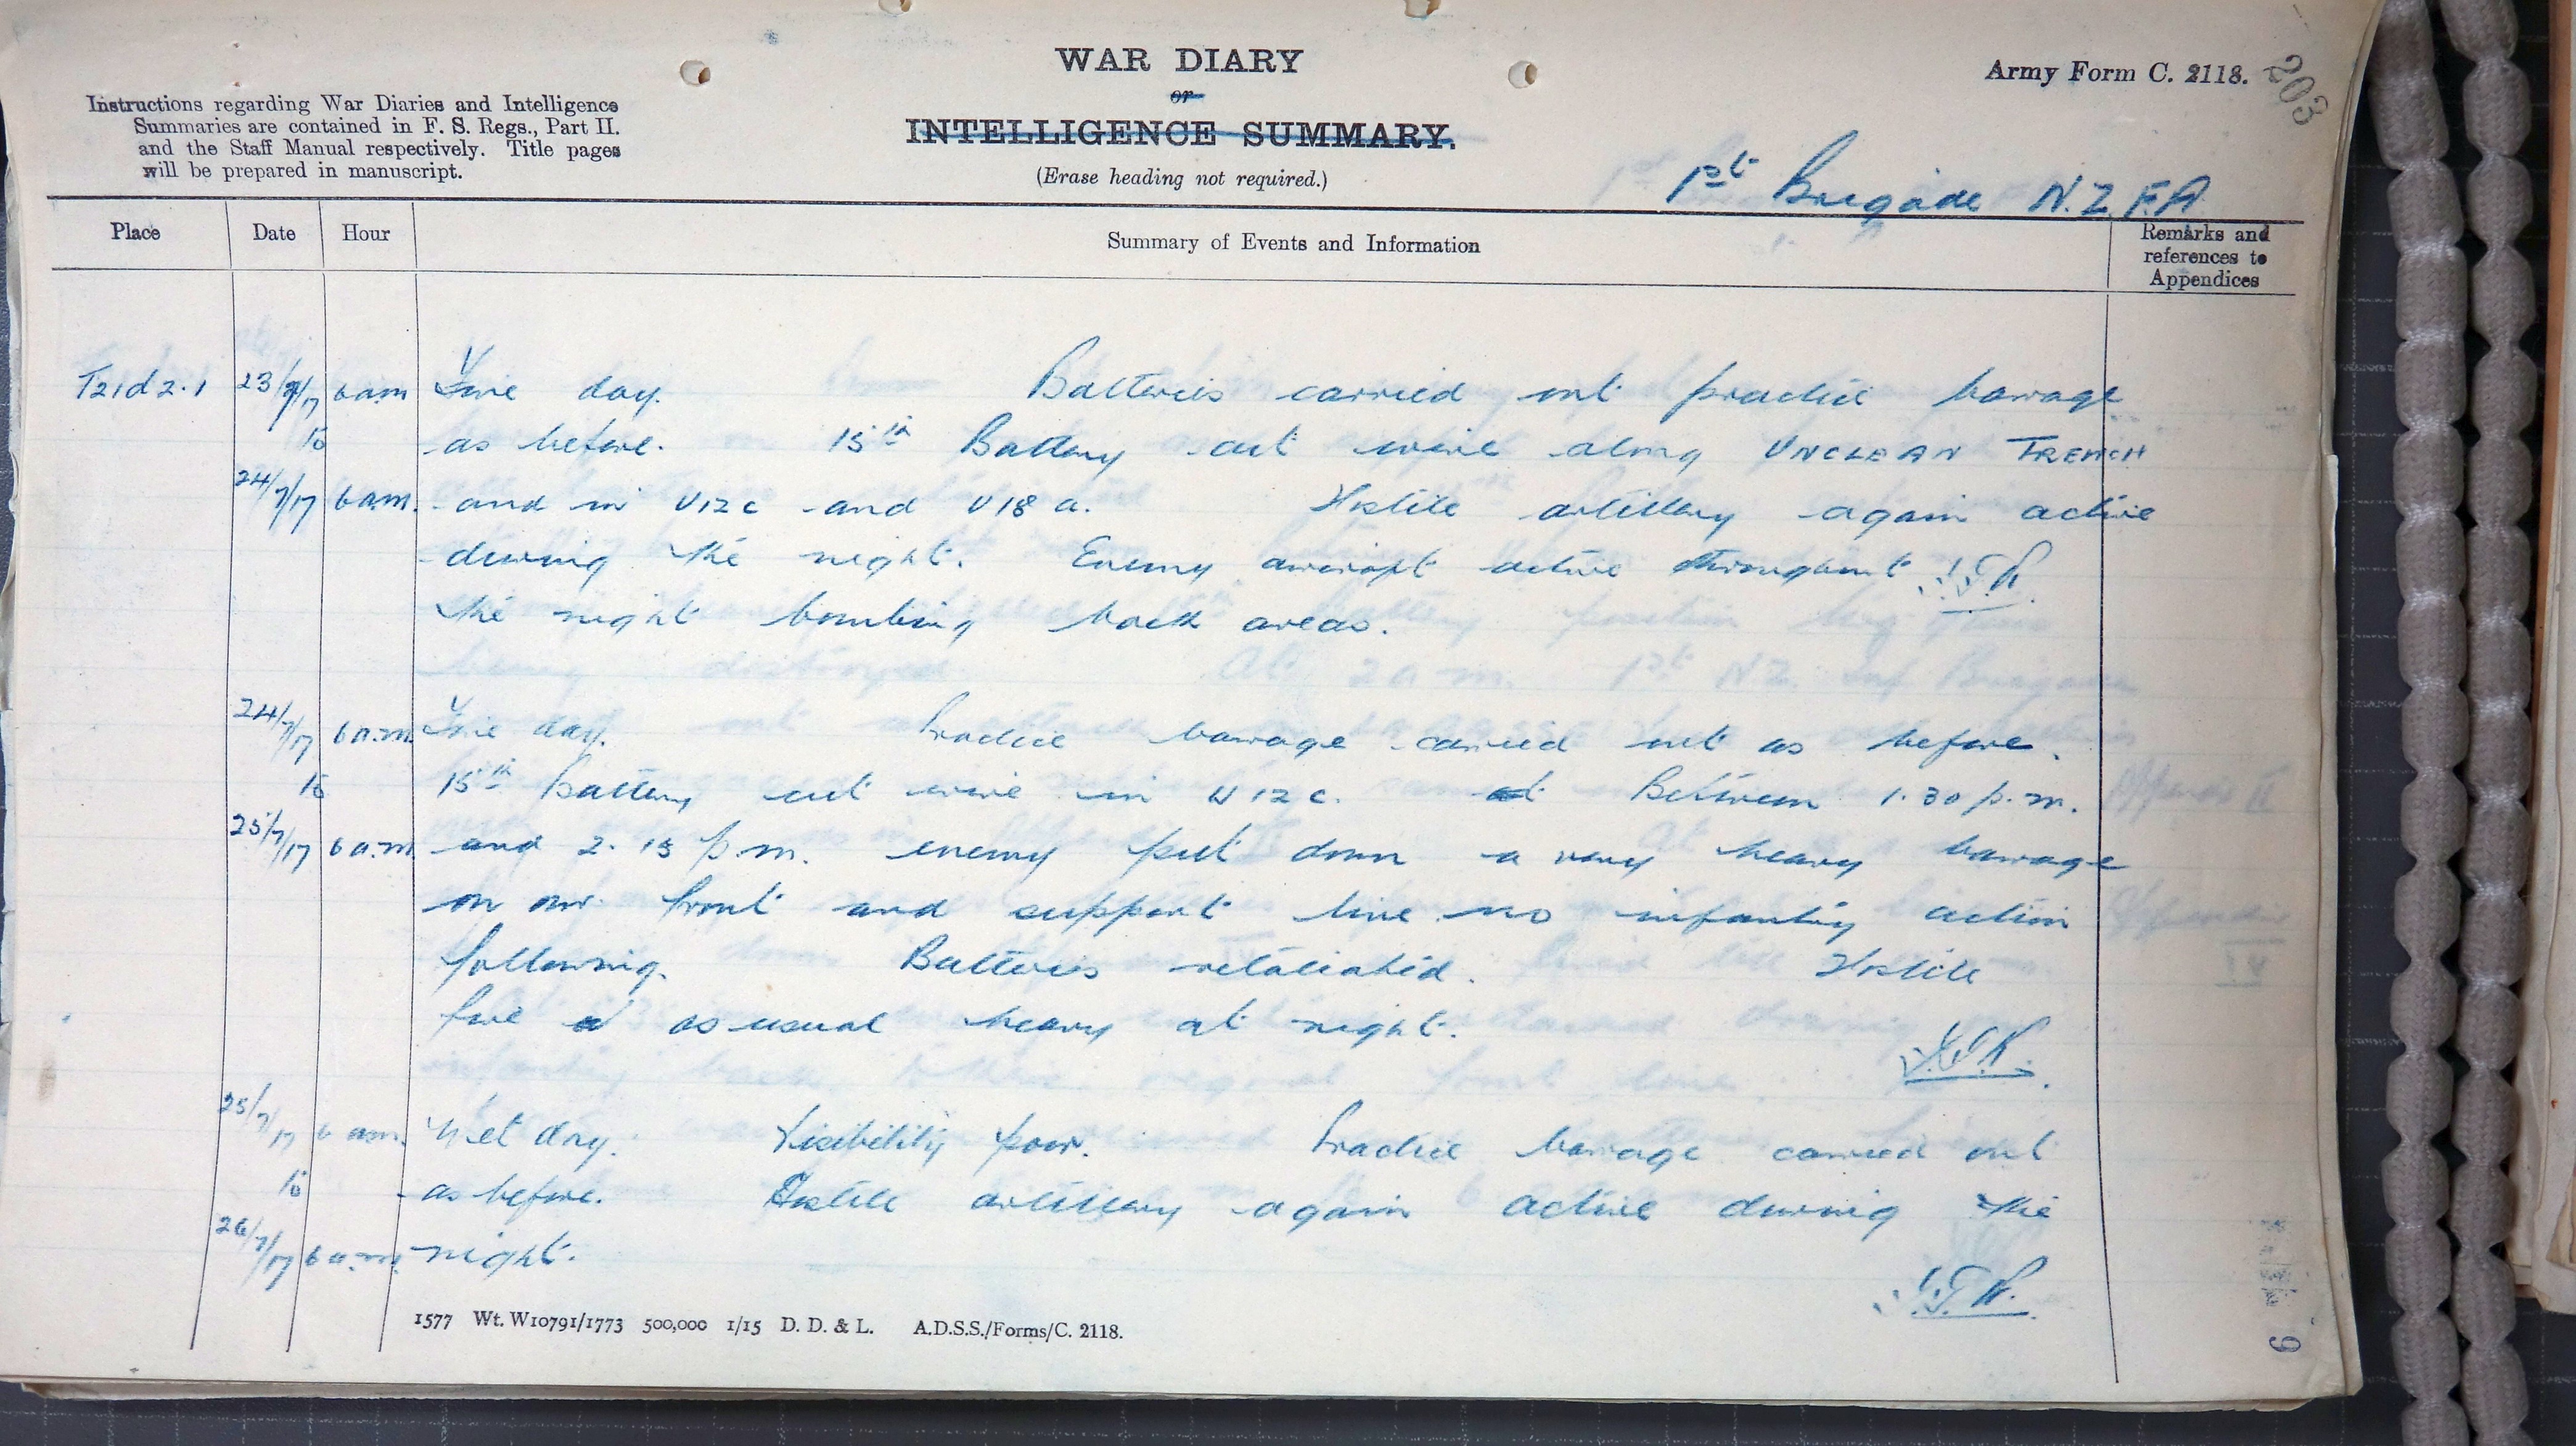 WAR DIARY
or
INTELLIGENCE SUMMARY.
(Erase heading not required.)
Army Form C. 2118.
203
Instructions regarding War Diaries and Intelligence
Summaries are contained in F. S. Regs., Part II.
and the Staff Manual respectively. Title pages
will be prepared in manuscript.
1st Brigade N.Z.F.A.
Place Date Hour Summary of Events and Information Remarks and
references to
Appendices
T21d2.1 23/7/17 6am Fine day. Batteries carried out practice barrage
to as before. 15th Battery cut wire along UNCLEAN TRENCH
24/7/17 6am. and in U12c and U18a. Hostile artillery again active
during the night. Enemy aircraft active throughout
the night bombing back areas.
24/7/17 6a.m. Fine day. Practice barrage carried out as before.
to 15th Battery cut wire in U12c. at Between 1.30 p.m.
25/7/17 6a.m and 2.15 p.m. enemy put down a very heavy barrage
on our front and support line no infantry action
following. Batteries retaliated. Hostile
fire as usual heavy at night.
25/7/17 6am. Wet day. Visibility poor. Practice barrage carried out
to as before. Hostile artillery again active during the
26/7/17 6a.m. night.
1577 Wt. W10791/1773 500,000 1/15 D. D. & L. A.D.S.S./Forms/C. 2118.
6